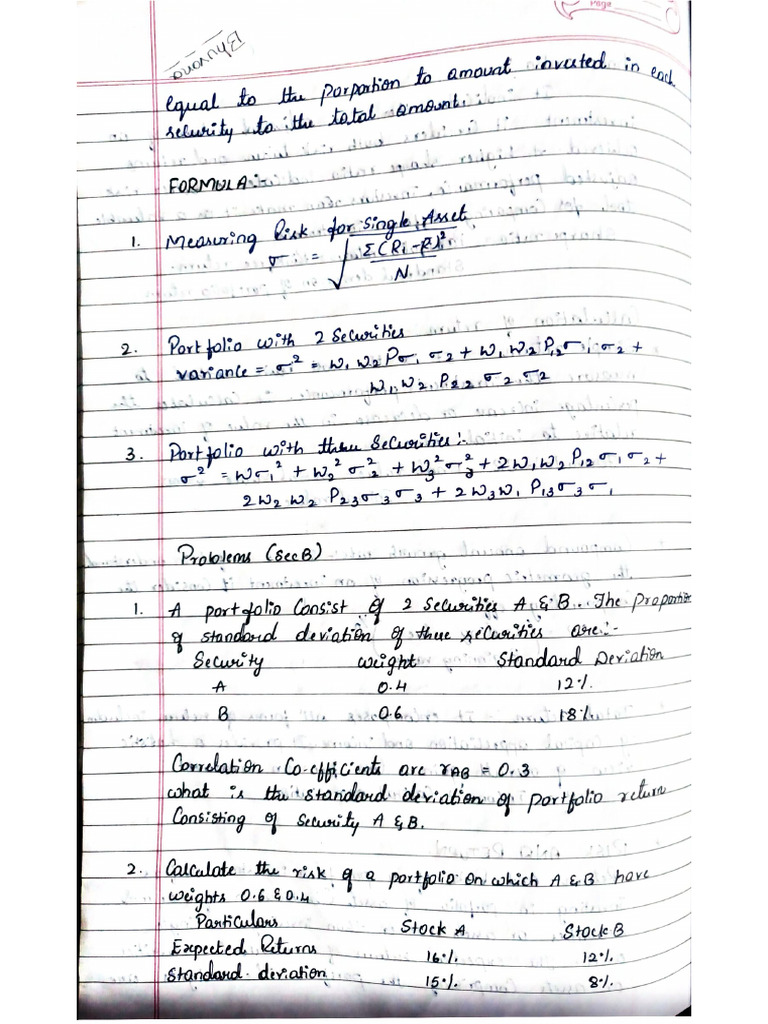 Page
Bhuvana
equal to the porportion to amount invested in each
security to the total amount.
FORMULA:-
1. Measuring Risk for Single Asset
σ = √Σ(Ri - R̄)²/N
2. Portfolio with 2 Securities
variance = σ² = w₁ w₂ Pσ₁ σ₂ + w₁ w₂ P₁₂ σ₁ σ₂ +
w₁ w₂ P₂₂ σ₂ σ₂
3. Portfolio with three Securities:-
σ² = wσ₁² + w₂² σ₂² + w₃² σ₃² + 2w₁ w₂ P₁₂ σ₁ σ₂ +
2w₂ w₂ P₂₃ σ₃ σ₃ + 2w₃ w₁ P₁₃ σ₃ σ₁
Problems (Sec B)
1. A portfolio consist of 2 Securities A & B. The Proportion
of standard deviation of these securities are:-
Security weight Standard Deviation
A 0.4 12%
B 0.6 18%
Correlation Co-efficients are rAB = 0.3
what is the standard deviation of portfolio return
Consisting of security A & B.
2. Calculate the risk of a portfolio on which A & B have
weights 0.6 & 0.4
Particulars Stock A Stock B
Expected Returns 16% 12%
Standard deviation 15% 8%